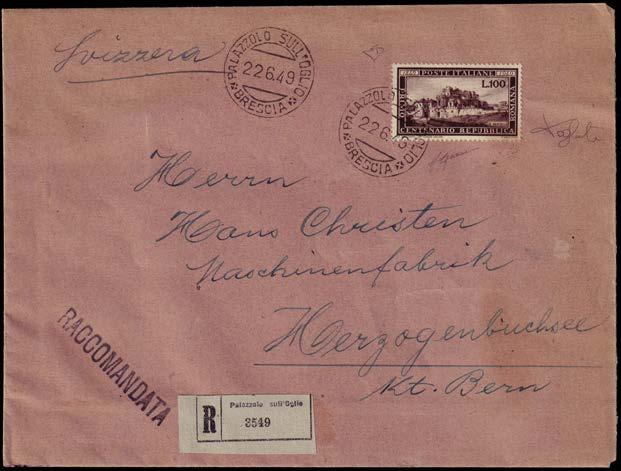 Svizzera
PALAZZOLO SULL'OGLIO
22.6.49
BRESCIA
1849 POSTE ITALIANE 1949
L.100
ROMANA
CENTENARIO REPUBBLICA
PALAZZOLO
OGLIO
22.6.
BRESCIA
Herrn
Hans Christen
Maschinenfabrik
Herzogenbuchsee
Kt. Bern
RACCOMANDATA
R
Palazzolo sull'Oglio
3549